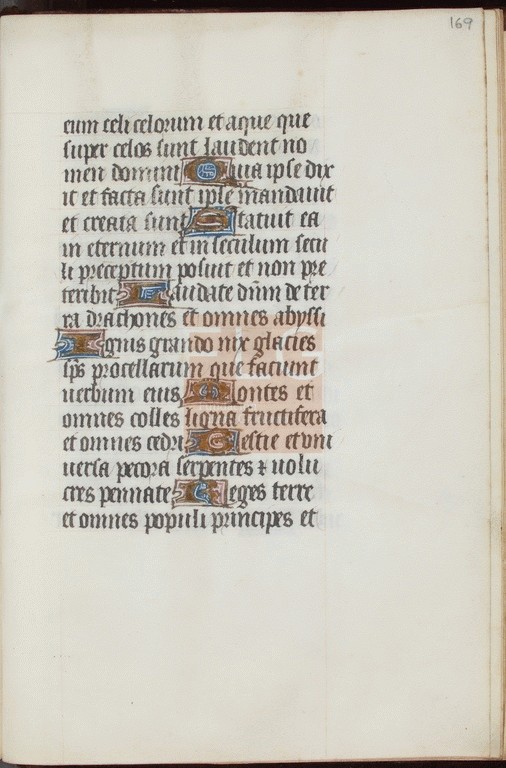 169
eum celi celorum et aque que
super celos sunt laudent no
men domini Quia ipse dix
it et facta sunt ipse mandauit
et creata sunt Statuit ea
in eternum et in seculum secu
li preceptum posuit et non pre
teribit Laudate dnm de ter
ra drachones et omnes abyssi
Ignis grando nix glacies
sps procellarum que faciunt
uerbum eius Montes et
omnes colles ligna fructifera
et omnes cedri Bestie et uni
uersa pecora serpentes ⁊ uolu
cres pennate Reges terre
et omnes populi principes et